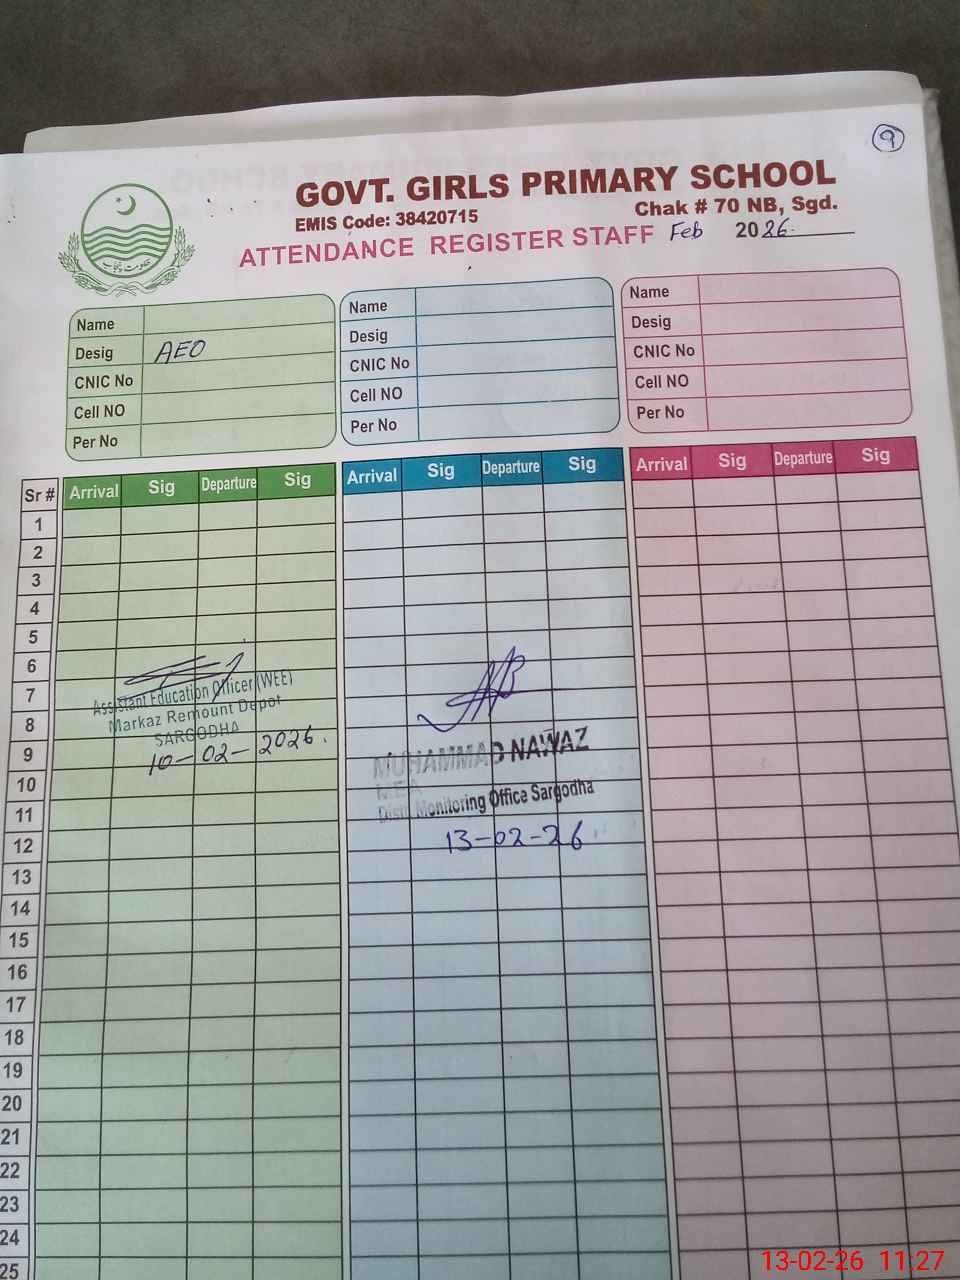 9
GOVT. GIRLS PRIMARY SCHOOL
EMIS Code: 38420715
Chak # 70 NB, Sgd.
ATTENDANCE REGISTER STAFF Feb 2026.
حکومت پنجاب
Name
Desig AEO
CNIC No
Cell NO
Per No
Name
Desig
CNIC No
Cell NO
Per No
Name
Desig
CNIC No
Cell NO
Per No
Sr # Arrival Sig Departure Sig Arrival Sig Departure Sig Arrival Sig Departure Sig
1
2
3
4
5
6
7
8
9
10
11
12
13
14
15
16
17
18
19
20
21
22
23
24
25
Assistant Education Officer (WEE)
Markaz Remount Depot
SARGODHA
10-02-2026.
MUHAMMAD NAWAZ
M.E.A
Distt. Monitoring Office Sargodha
13-02-26
13-02-26 11:27